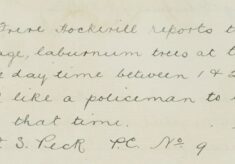 Frere Hockerill reports t
age, laburnum trees at t
e day time between 1 & 2
d like a policeman to
that time.
S. Peck P.C. No 9